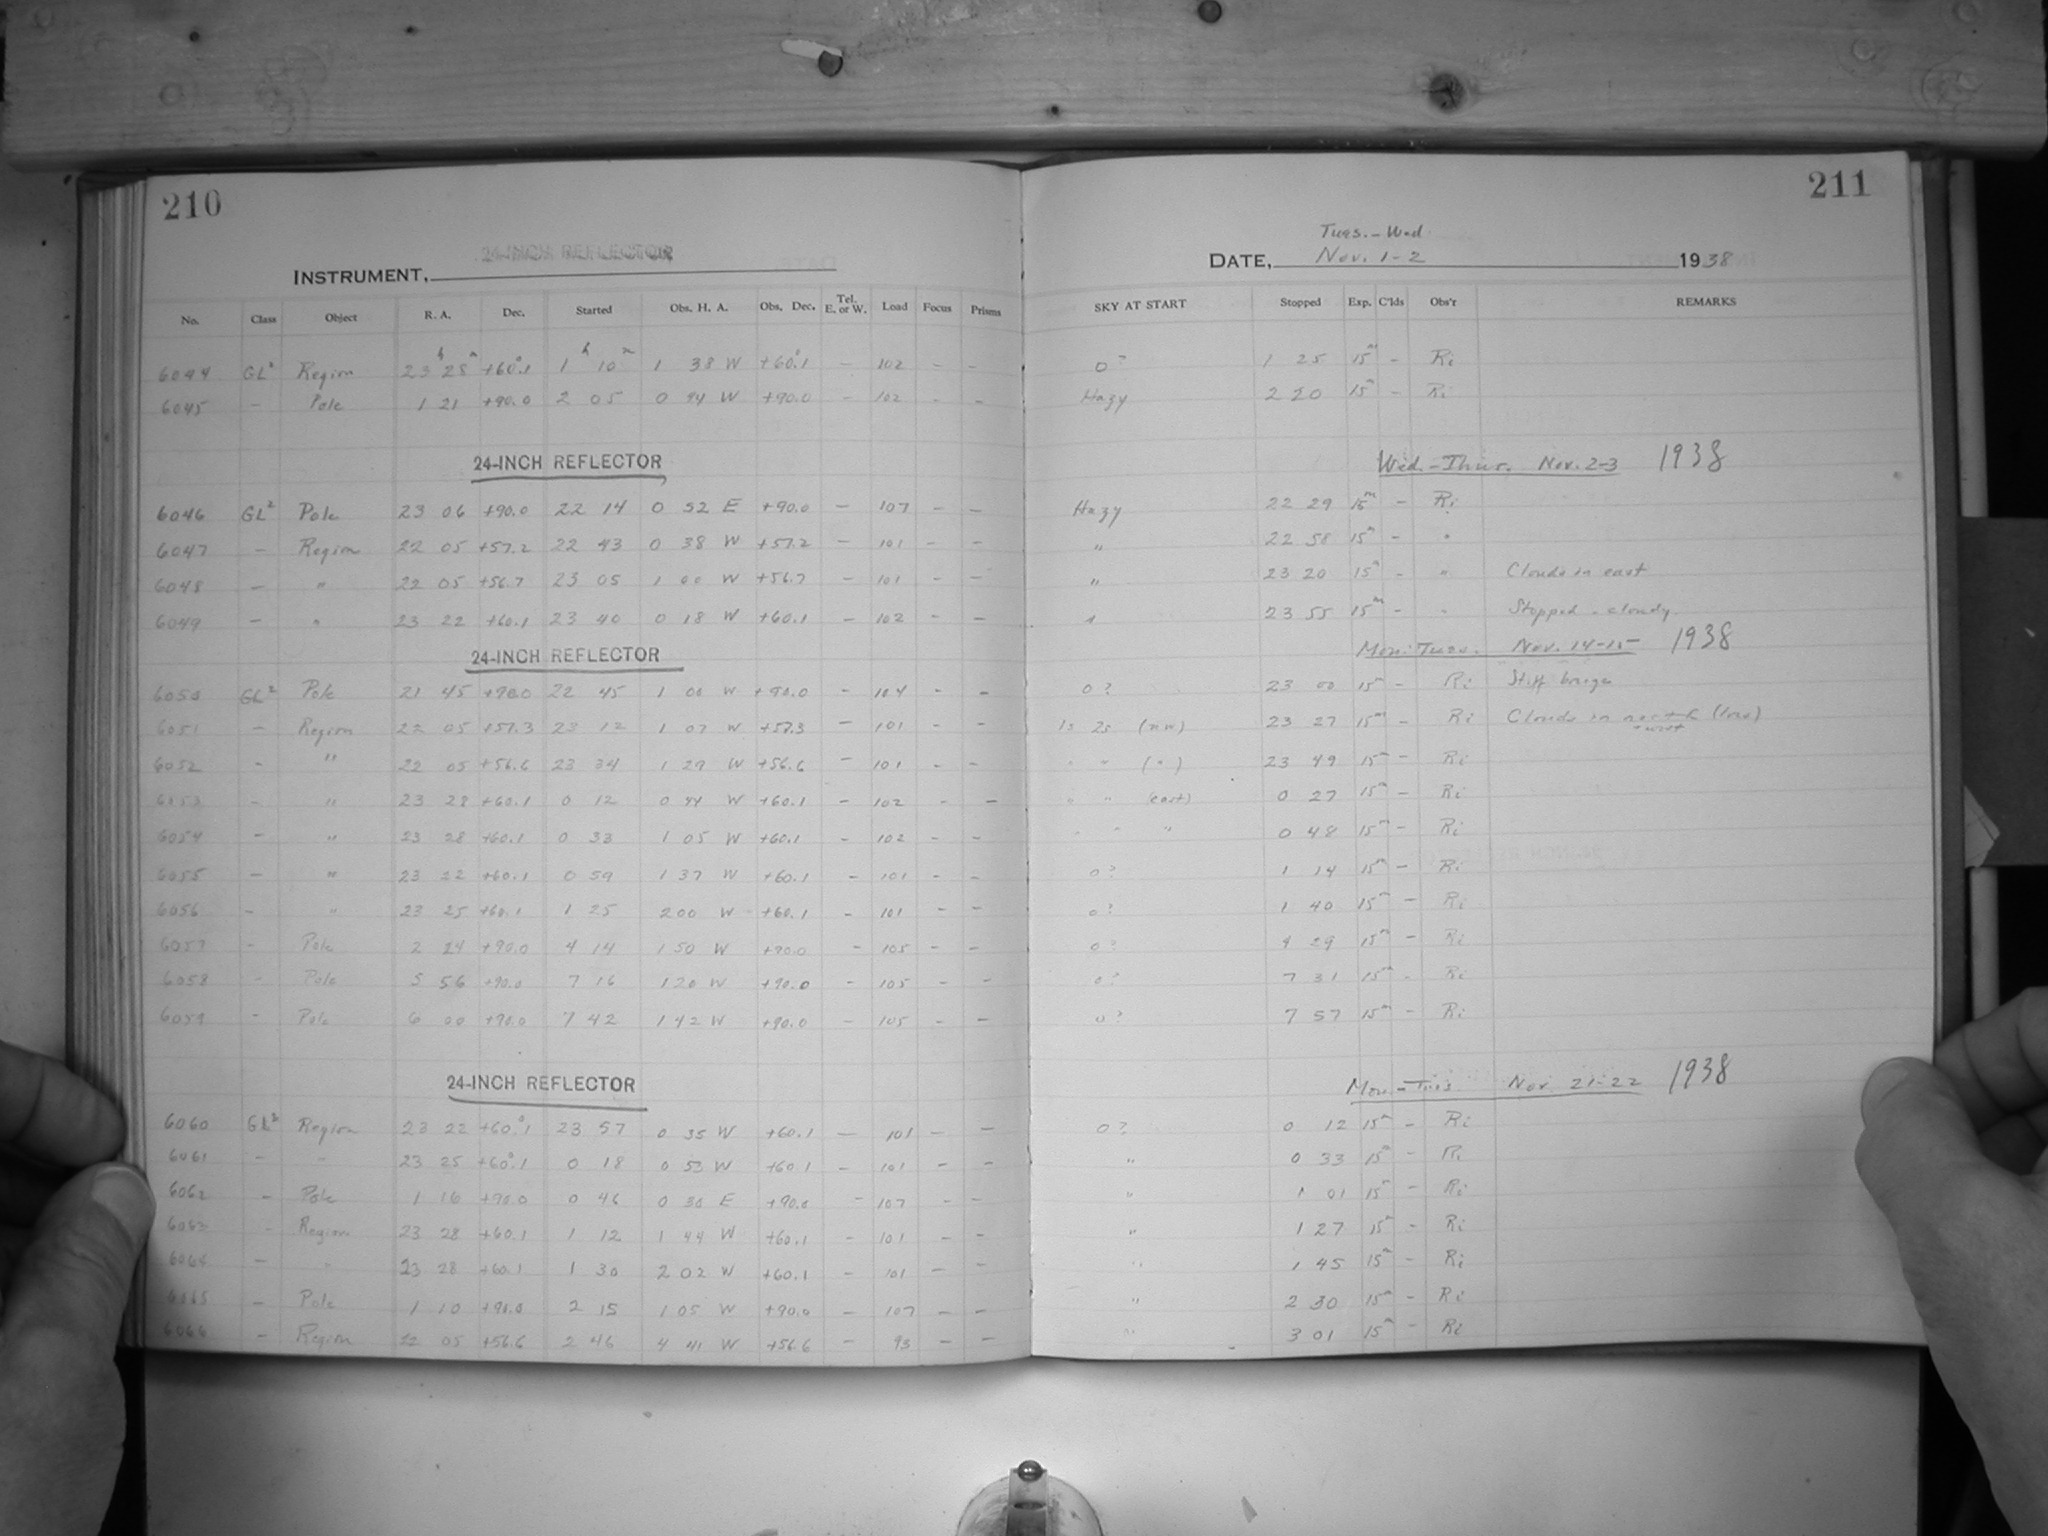 210
211
24-INCH REFLECTOR
INSTRUMENT,
Tues. - Wed
DATE, Nov. 1-2 1938
No. Class Object R. A. Dec. Started Obs. H. A. Obs. Dec. Tel. E. or W. Load Focus Prisms SKY AT START Stopped Exp. C'lds Obs'r REMARKS
6044 GL² Region 23ʰ 25ᵐ +60°.1 1ʰ 10ᵐ 1 38 W +60°.1 - 102 - - 0? 1 25 15ᵐ - Ri
6045 - Pole 1 21 +90.0 2 05 0 44 W +90.0 - 102 - - Hazy 2 20 15ᵐ - Ri
24-INCH REFLECTOR Wed. - Thus. Nov. 2-3 1938
6046 GL² Pole 23 06 +90.0 22 14 0 52 E +90.0 - 107 - - Hazy 22 29 15ᵐ - Ri
6047 - Region 22 05 +57.2 22 43 0 38 W +57.2 - 101 - - " 22 58 15ᵐ - "
6048 - " 22 05 +56.7 23 05 1 00 W +56.7 - 101 - - " 23 20 15ᵐ - " Clouds in east
6049 - " 23 22 +60.1 23 40 0 18 W +60.1 - 102 - - " 23 55 15ᵐ - " Stopped - cloudy
24-INCH REFLECTOR Mon. Tues. Nov. 14-15 1938
6050 GL² Pole 21 45 +90.0 22 45 1 00 W +90.0 - 104 - - 0? 23 00 15ᵐ - Ri Stiff breeze
6051 - Region 22 05 +57.3 23 12 1 07 W +57.3 - 101 - - 1s 2s (nw) 23 27 15ᵐ - Ri Clouds in north (low)
+ west
6052 - " 22 05 +56.6 23 34 1 29 W +56.6 - 101 - - " " (") 23 49 15ᵐ - Ri
6053 - " 23 28 +60.1 0 12 0 44 W +60.1 - 102 - - " " (east) 0 27 15ᵐ - Ri
6054 - " 23 28 +60.1 0 33 1 05 W +60.1 - 102 - - " " " 0 48 15ᵐ - Ri
6055 - " 23 22 +60.1 0 59 1 37 W +60.1 - 101 - - 0? 1 14 15ᵐ - Ri
6056 - " 23 25 +60.1 1 25 2 00 W +60.1 - 101 - - 0? 1 40 15ᵐ - Ri
6057 - Pole 2 24 +90.0 4 14 1 50 W +90.0 - 105 - - 0? 4 29 15ᵐ - Ri
6058 - Pole 5 56 +90.0 7 16 1 20 W +90.0 - 105 - - 0? 7 31 15ᵐ - Ri
6059 - Pole 6 00 +90.0 7 42 1 42 W +90.0 - 105 - - 0? 7 57 15ᵐ - Ri
24-INCH REFLECTOR Mon. - Tues. Nov. 21-22 1938
6060 GL² Region 23 22 +60°.1 23 57 0 35 W +60.1 - 101 - - 0? 0 12 15ᵐ - Ri
6061 - " 23 25 +60°.1 0 18 0 53 W +60.1 - 101 - - " 0 33 15ᵐ - Ri
6062 - Pole 1 16 +90.0 0 46 0 30 E +90.0 - 107 - - " 1 01 15ᵐ - Ri
6063 - Region 23 28 +60.1 1 12 1 44 W +60.1 - 101 - - " 1 27 15ᵐ - Ri
6064 - " 23 28 +60.1 1 30 2 02 W +60.1 - 101 - - " 1 45 15ᵐ - Ri
6065 - Pole 1 10 +90.0 2 15 1 05 W +90.0 - 107 - - " 2 30 15ᵐ - Ri
6066 - Region 22 05 +56.6 2 46 4 41 W +56.6 - 93 - - " 3 01 15ᵐ - Ri